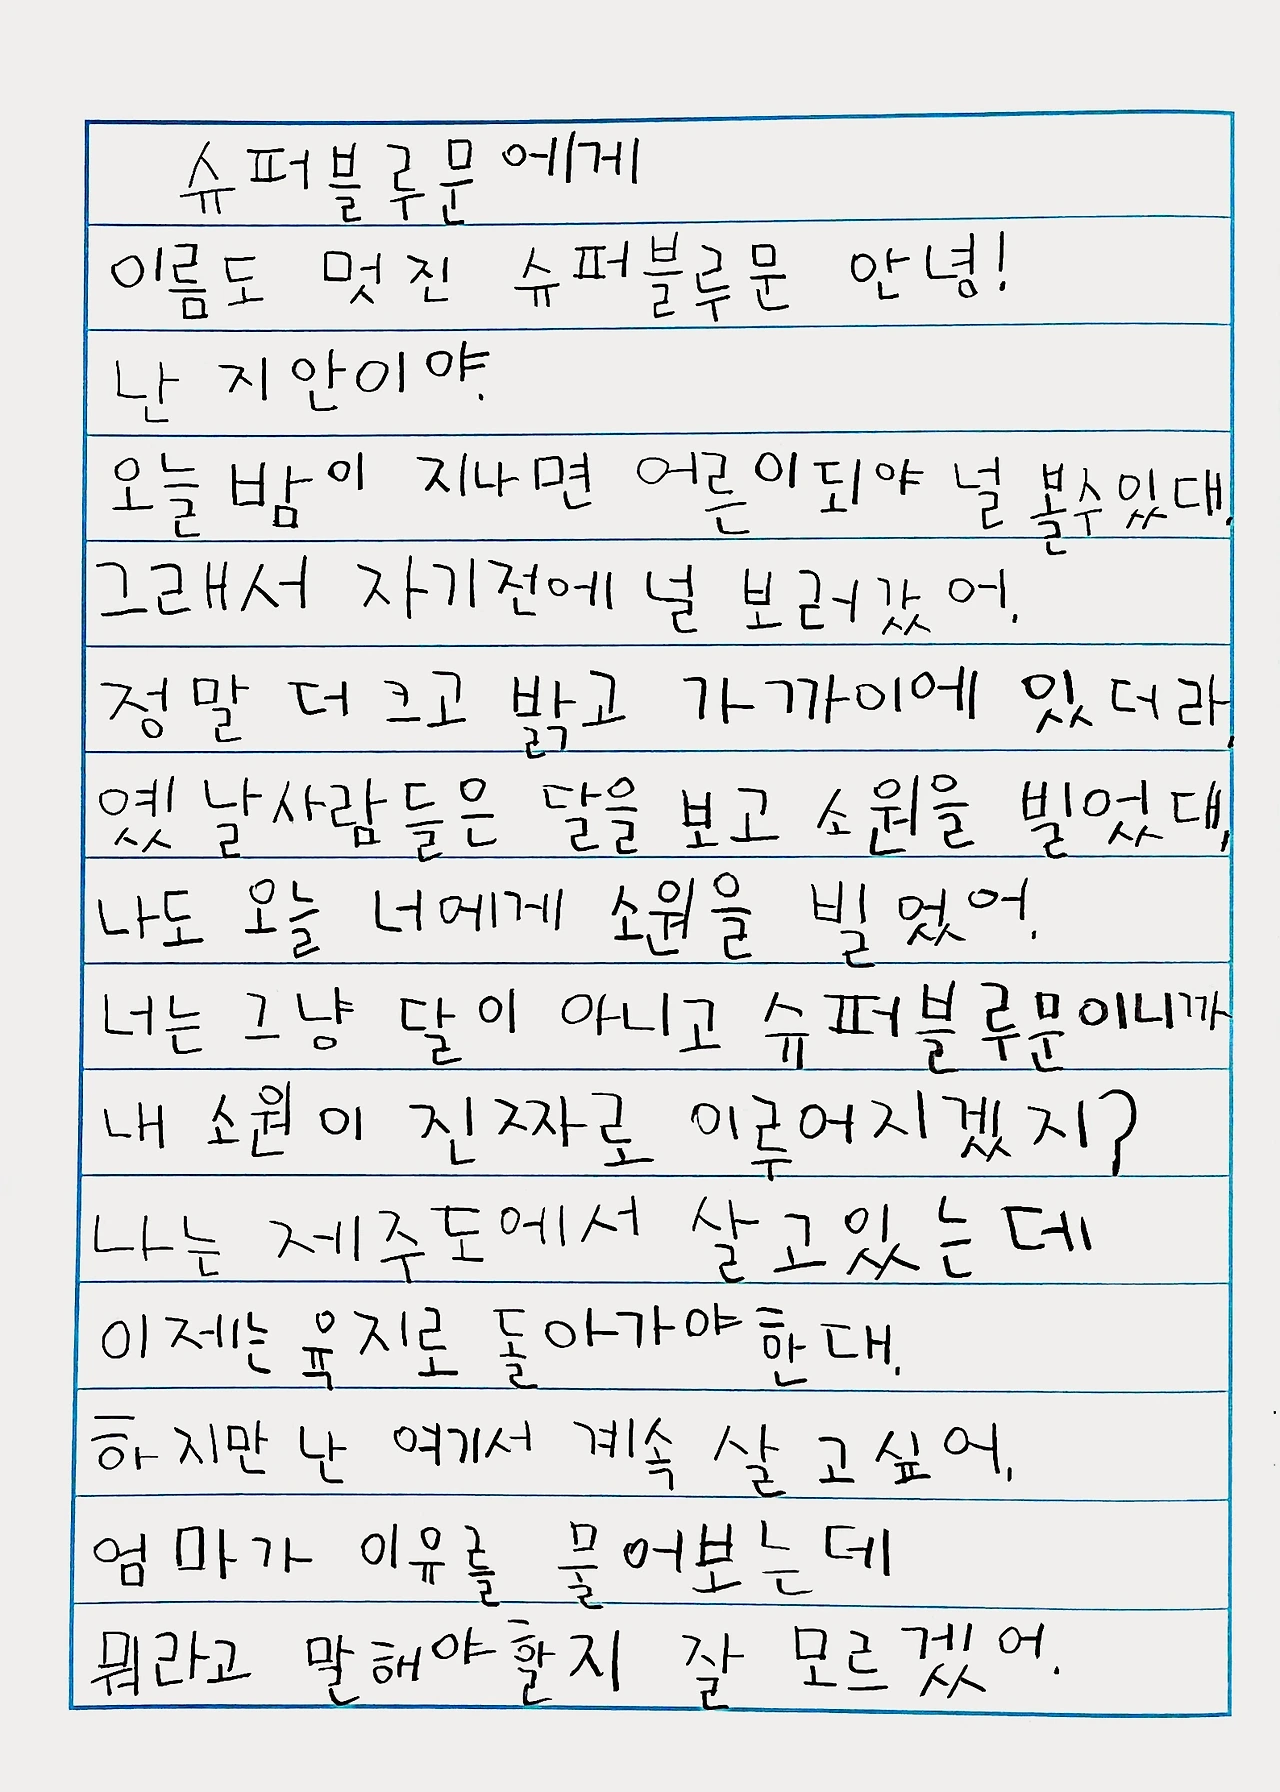 슈퍼블루문에게
이름도 멋진 슈퍼블루문 안녕!
난 지안이야.
오늘밤이 지나면 어른이되야 널 볼수있대.
그래서 자기전에 널 보러갔어.
정말 더 크고 밝고 가까이에 있더라.
옛날사람들은 달을 보고 소원을 빌었대.
나도 오늘 너에게 소원을 빌었어.
너는 그냥 달이 아니고 슈퍼블루문이니까
내 소원이 진짜로 이루어지겠지?
나는 제주도에서 살고있는데
이제는 육지로 돌아가야한대.
하지만 난 여기서 계속 살고싶어.
엄마가 이유를 물어보는데
뭐라고 말해야할지 잘 모르겠어.